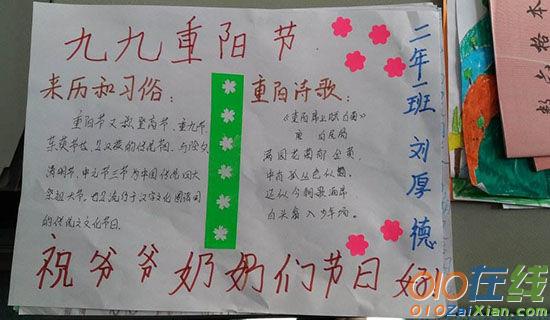 九九重阳节
来历和习俗：
重阳节又称登高节、重九节、
茱萸节等,是汉族的传统节日,与除夕、
清明节、中元节三节为中国传统四大
祭祖大节。也是流行于汉字文化圈诸国
的传统文化节日。
重阳诗歌：
《重阳席上赋白菊》
唐 白居易
满园花菊郁金黄,
中有孤丛色似霜。
还似今朝歌酒席,
白头翁入少年场。
二年一班 刘厚德
祝爷爷奶奶们节日好
数学
格本
010在线
010ZaiXian.com